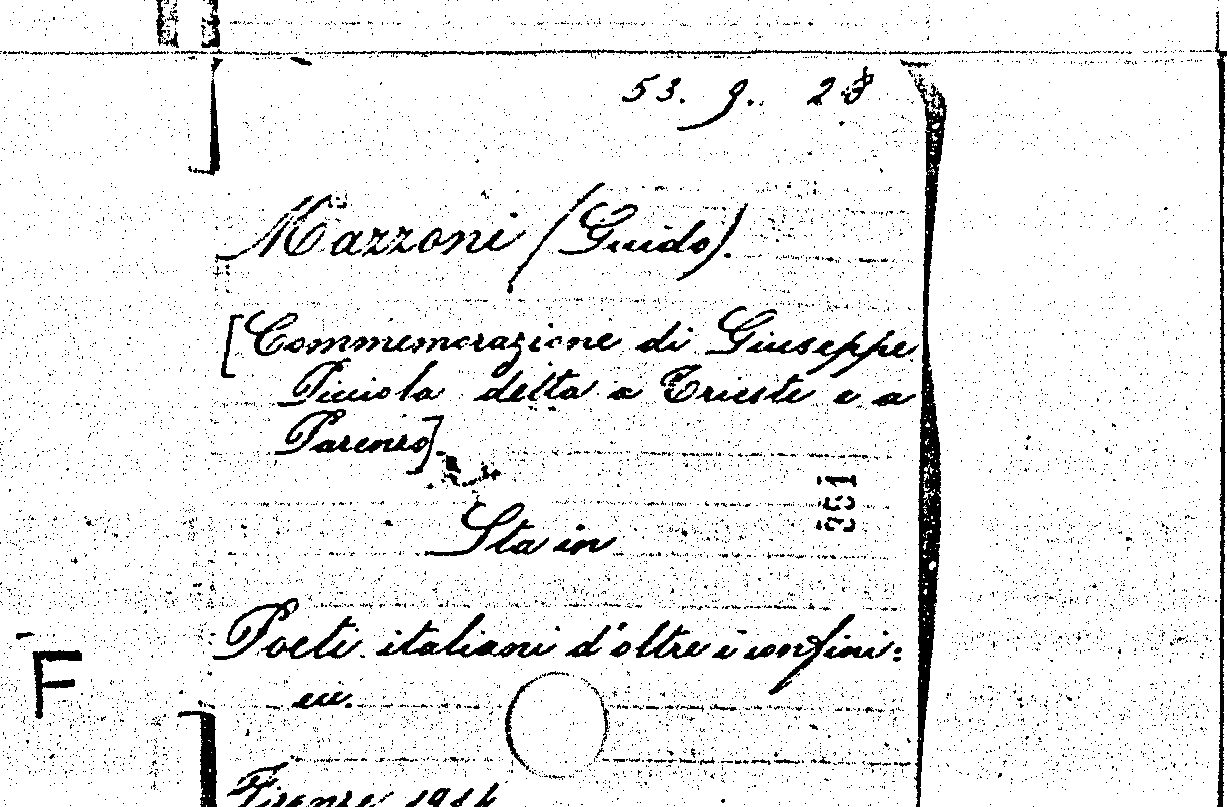 53. 9. 28
Mazzoni (Guido).
[Commemorazione di Giuseppe
Picciola detta a Trieste e a
Parenzo].
361
Sta in
Poeti italiani d'oltre i confini:
ecc.
F
Firenze 1914